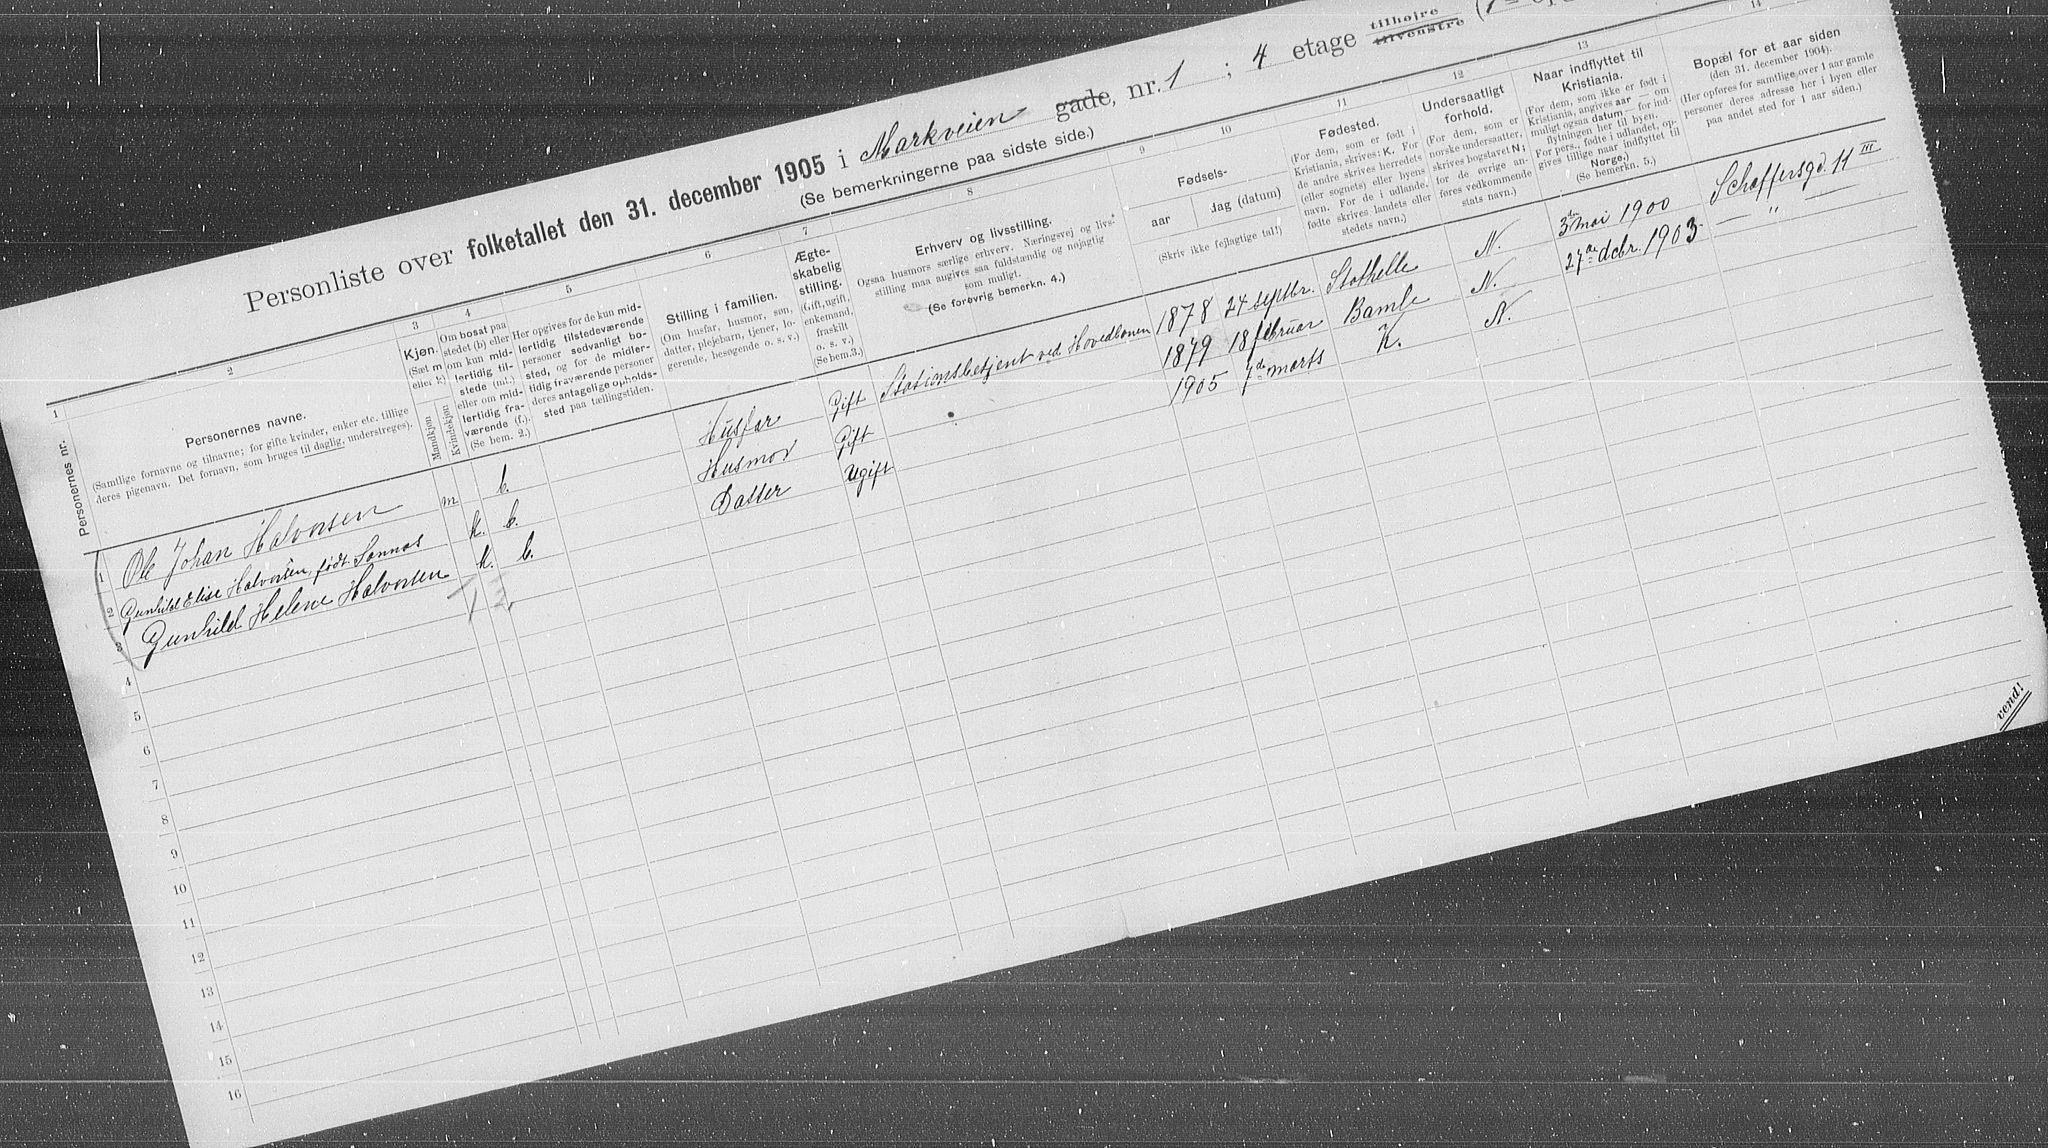 Personliste over folketallet den 31. december 1905 i Markveien gade, nr. 1 ; 4 etage tilhøire tilvenstre
(Se bemerkningerne paa sidste side.)
1
Personernes nr.
2
Personernes navne.
(Samtlige fornavne og tilnavne; for gifte kvinder, enker etc. tillige
deres pigenavn. Det fornavn, som bruges til daglig, understreges).
3
Kjøn.
(Sæt m
eller k)
Mandkjøn
Kvindekjøn
4
Om bosat paa
stedet (b) eller
om kun mid-
lertidig til-
stede (mt.)
eller om mid-
lertidig fra-
værende (f.).
(Se bem. 2.)
5
Her opgives for de kun mid-
lertidig tilstedeværende
personer sedvanligt bo-
sted, og for de midler-
tidig fraværende personer
deres antagelige opholds-
sted paa tællingstiden.
6
Stilling i familien.
(Om husfar, husmor, søn,
datter, plejebarn, tjener, lo-
gerende, besøgende o. s. v.)
7
Ægte-
skabelig
stilling.
(Gift, ugift,
enkemand,
fraskilt
o. s. v.)
(Se bem.3.)
8
Erhverv og livsstilling.
Ogsaa husmors særlige erhverv. Næringsvej og livs-
stilling maa angives saa fuldstændig og nøjagtig
som muligt.
(Se forøvrig bemerkn. 4.)
9
10
Fødsels-
aar
dag (datum)
(Skriv ikke fejlagtige tal!)
11
Fødested.
(For dem, som er født i
Kristiania, skrives: K. For
de andre skrives herredets
(eller sognets) eller byens
navn. For de i udlandet
fødte skrives landets eller
stedets navn.)
12
Undersaatligt
forhold.
(For dem, som er
norske undersaatter,
skrives bogstavet N;
for de øvrige an-
føres vedkommende
stats navn.)
13
Naar indflyttet til
Kristiania.
(For dem, som ikke er født i
Kristiania, angives aar — om
muligt ogsaa datum — for ind-
flytningen her til byen.
For pers., fødte i udlandet, op-
gives tillige naar indflyttet til
Norge.)
(Se bemerkn. 5.)
14
Bopæl for et aar siden
(den 31. december 1904).
(Her opføres for samtlige over 1 aar gamle
personer deres adresse her i byen eller
paa andet sted for 1 aar siden.)
1 Ole Johan Halvorsen m b. Husfar Gift Stationsbetjent ved Hovedbanen 1878 24 septbr. Stathelle N. 3den mai 1900 Schaffersgd. 11 III
2 Gunhild Elise Halvorsen, født Sannas k. b. Husmor Gift 1879 18 februar Bamle N. 27de dcbr. 1903 — " —
3 Gunhild Helene Halvorsen k. b. Datter Ugift 1905 7de marts K. N.
4
5
6
7
8
9
10
11
12
13
14
15
16
vend!